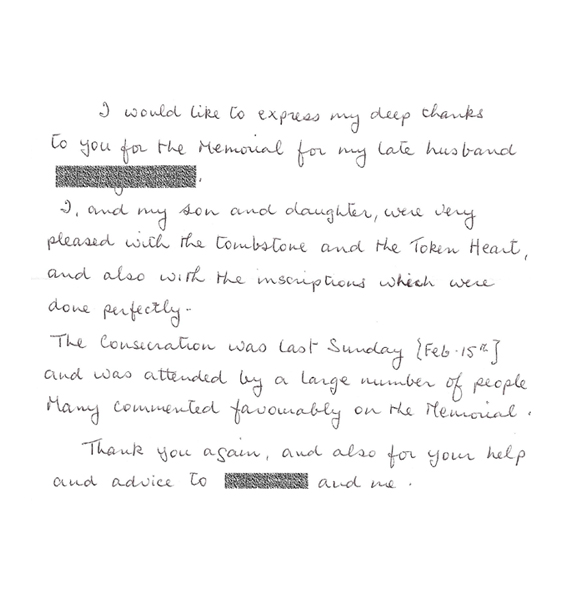 I would like to express my deep thanks
to you for the Memorial for my late husband
.
I, and my son and daughter, were very
pleased with the tombstone and the Token Heart,
and also with the inscriptions which were
done perfectly.
The Consecration was last Sunday {Feb. 15th]
and was attended by a large number of people
Many commented favourably on the Memorial.
Thank you again, and also for your help
and advice to and me.